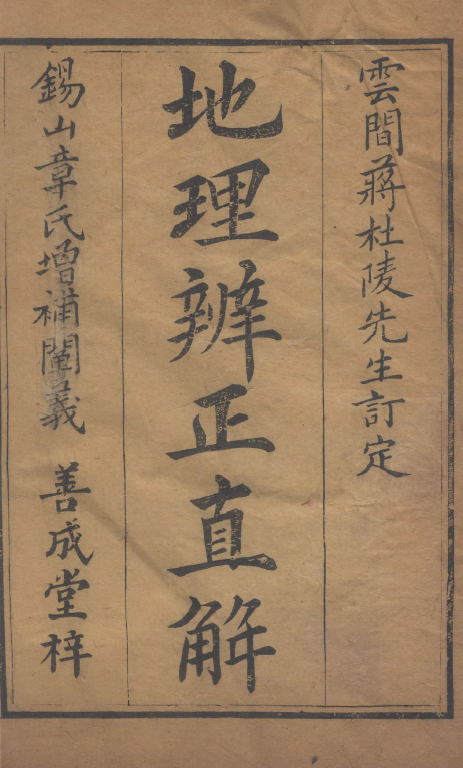 雲間蔣杜陵先生訂定
地理辨正直解
錫山章氏增補闡義 善成堂梓